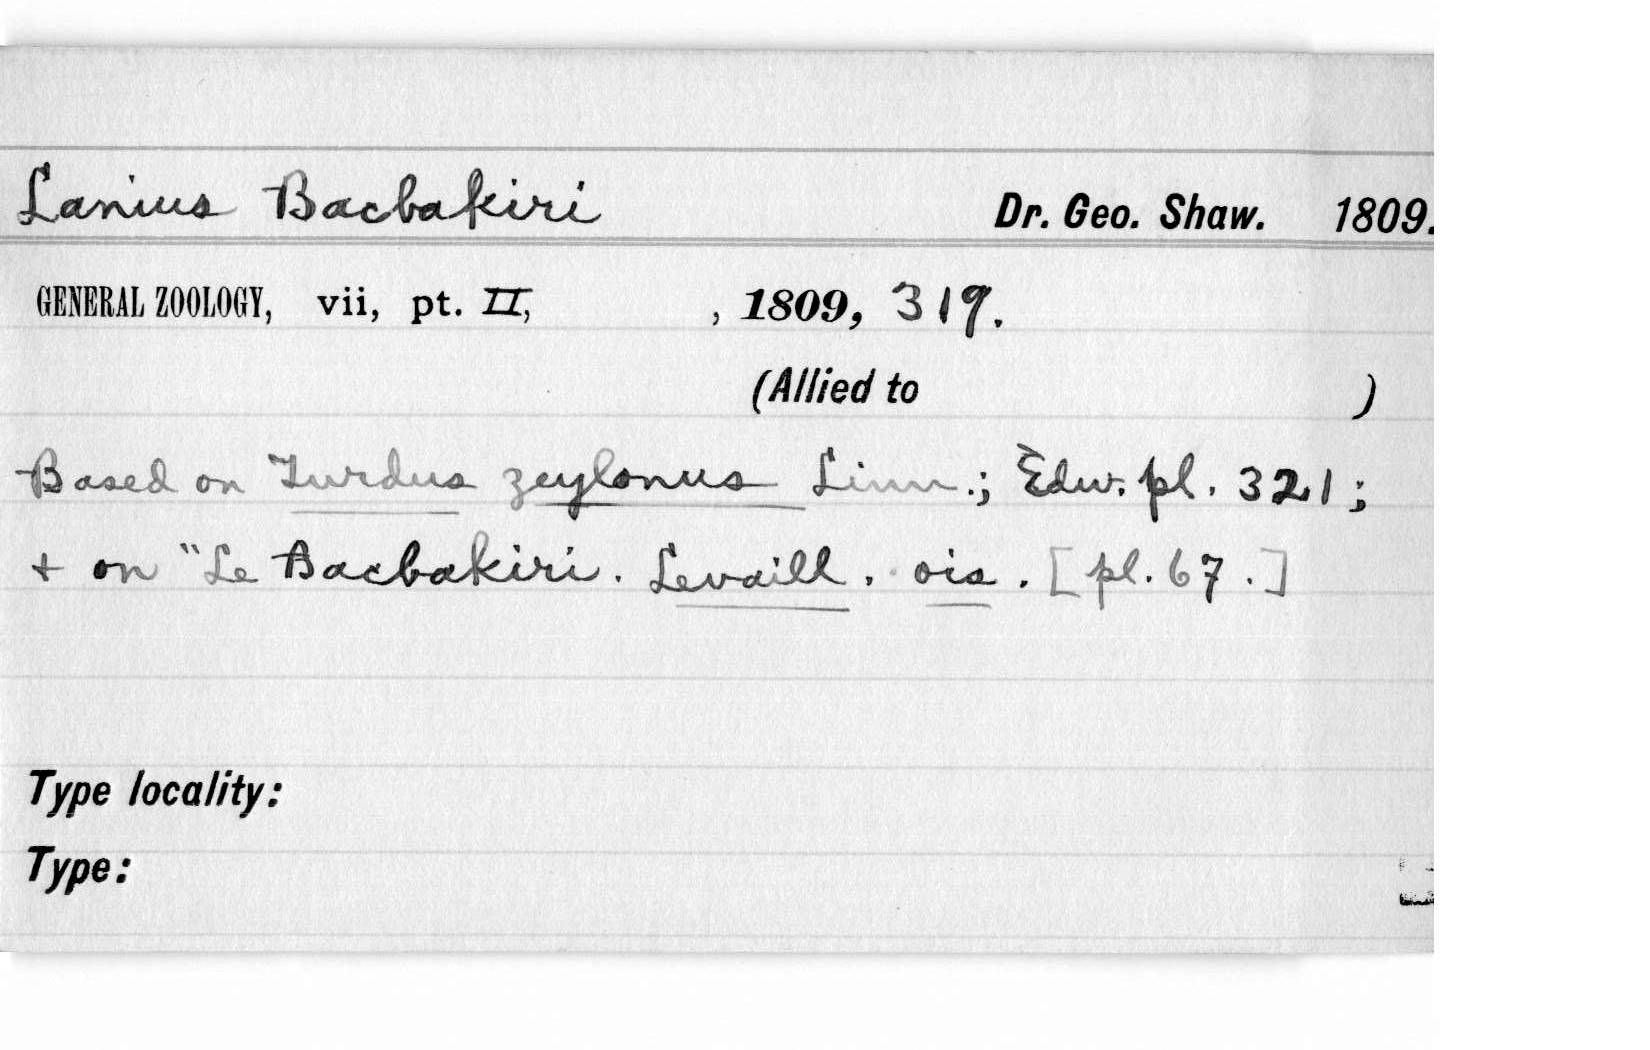 Lanius Bacbakiri Dr. Geo. Shaw. 1809.
GENERAL ZOOLOGY, vii, pt. II, , 1809, 319.
(Allied to )
Based on Turdus zeylonus Linn.; Edw. pl. 321;
+ on "Le Bacbakiri. Levaill. ois. [pl. 67.]
Type locality:
Type: